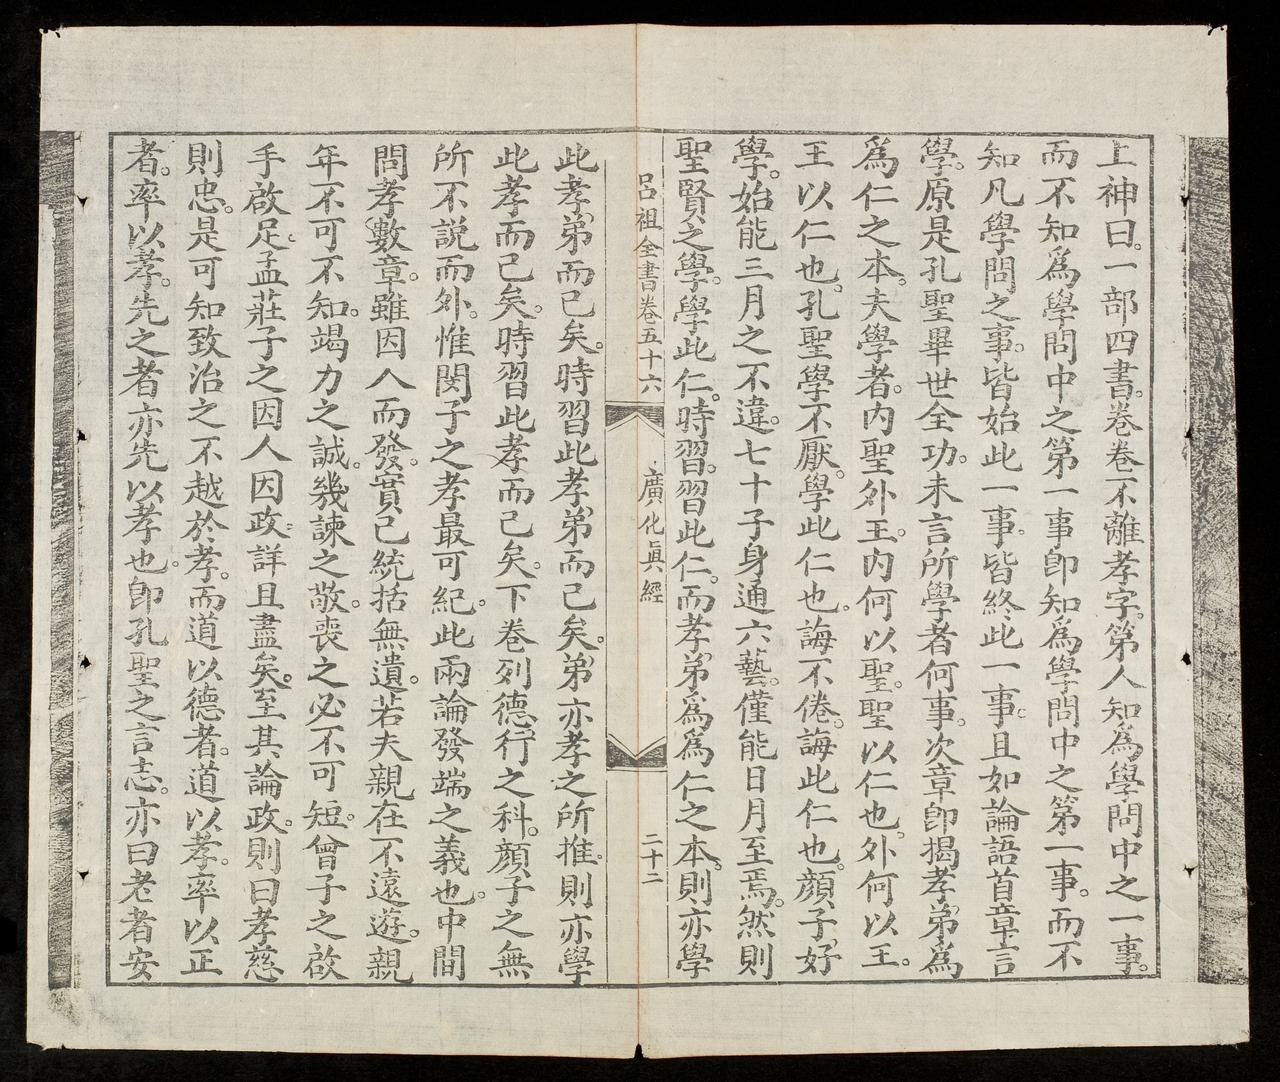 上神曰。一部四書。卷卷不離孝字。第人知為學問中之一事。
而不知為學問中之第一事。卽知為學問中之第一事。而不
知凡學問之事。皆始此一事。皆終此一事。且如論語首章言
學。原是孔聖畢世全功。未言所學者何事。次章卽揭孝弟為
為仁之本。夫學者。內聖外王。內何以聖。聖以仁也。外何以王。
王以仁也。孔聖學不厭。學此仁也。誨不倦。誨此仁也。顏子好
學。始能三月之不違。七十子身通六藝。僅能日月至焉。然則
聖賢之學。學此仁。時習。習此仁。而孝弟為為仁之本。則亦學
呂祖全書卷五十六 廣化眞經 二十二
此孝弟而已矣。時習此孝弟而已矣。弟亦孝之所推。則亦學
此孝而已矣。時習此孝而已矣。下卷列德行之科。顏子之無
所不說而外。惟閔子之孝最可紀。此兩論發端之義也。中間
問孝數章。雖因人而發。實已統括無遺。若夫親在不遠遊。親
年不可不知。竭力之誠。幾諫之敬。喪之必不可短。曾子之啟
手啟足。孟莊子之因人因政。詳且盡矣。至其論政。則曰孝慈
則忠。是可知致治之不越於孝。而道以德者。道以孝。率以正
者。率以孝。先之者亦先以孝也。卽孔聖之言志。亦曰老者安